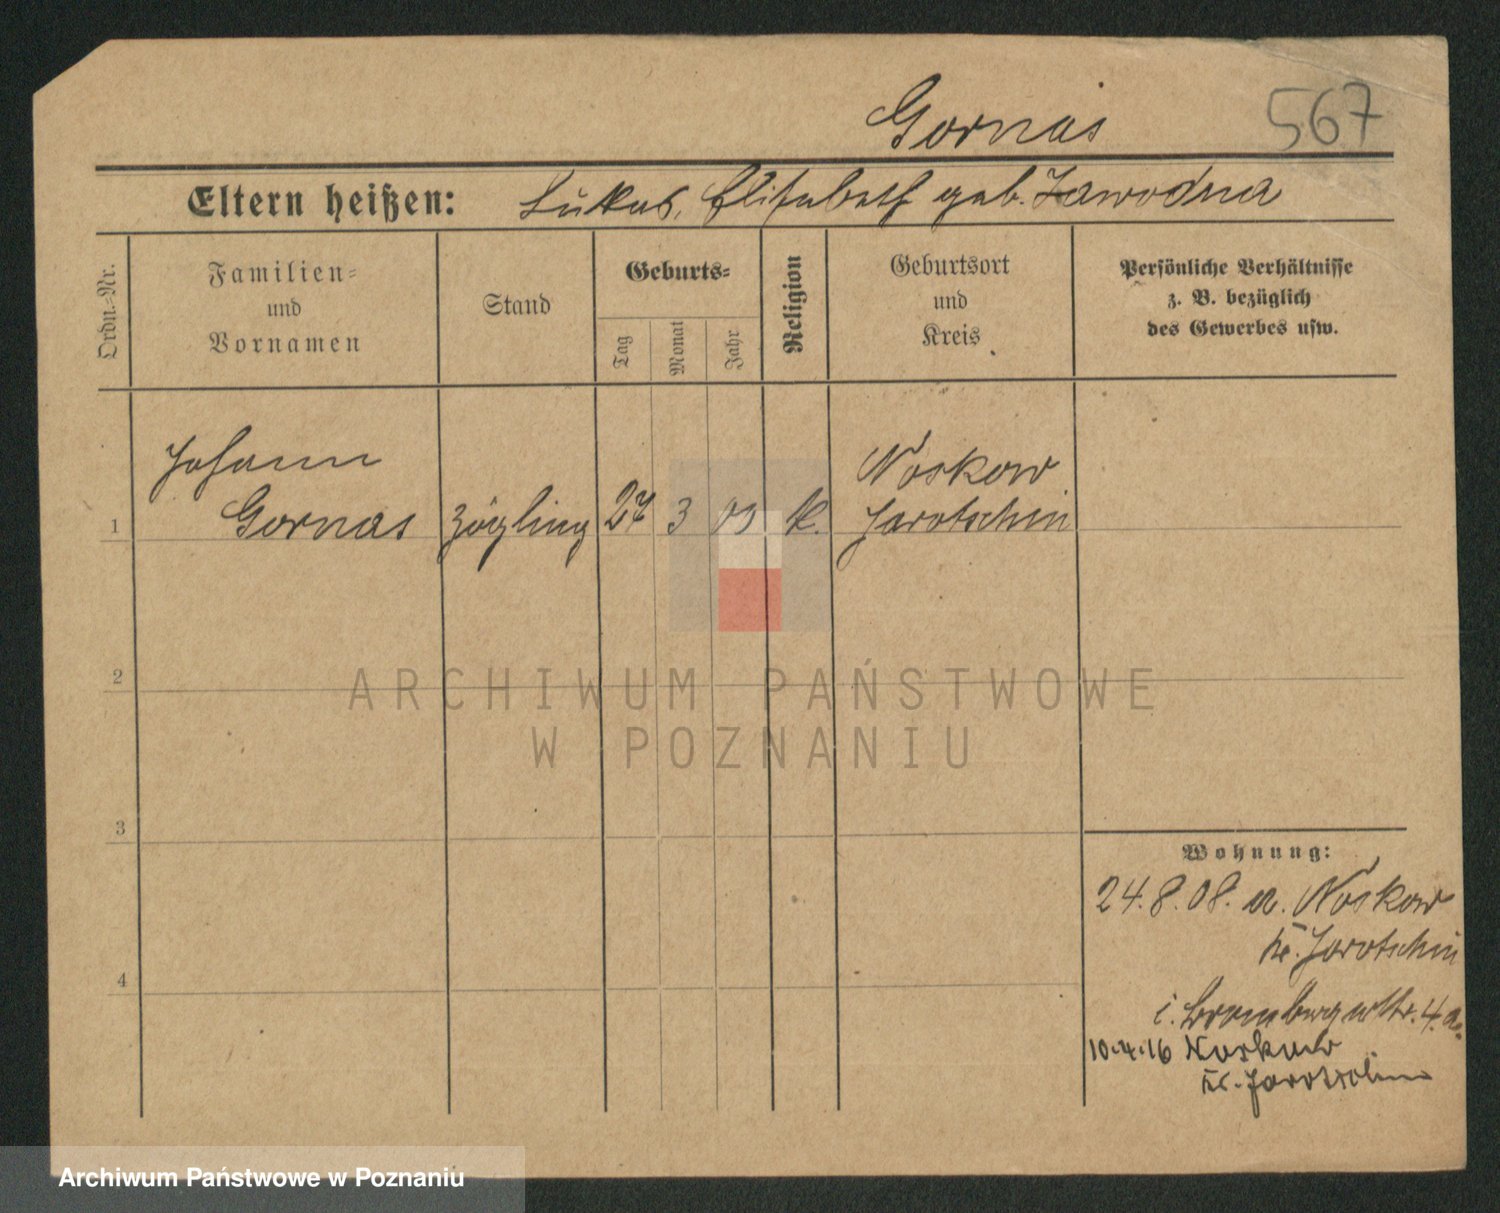 Gornas
567
Eltern heißen: Lukas, Elisabeth geb. Zawodna
Ordn.-Nr.
Familien-
und
Vornamen
Stand
Geburts-
Tag
Monat
Jahr
Religion
Geburtsort
und
Kreis
Persönliche Verhältnisse
z. B. bezüglich
des Gewerbes usw.
Johann Noskow
1 Gornas Zögling 27 3 03 k. Jarotschin
2
3
4
Wohnung:
24.8.08. a. Noskow
Kr. Jarotschin
i. Brombergerstr. 4.a.
10.4.16 Noskow
Kr. Jarotschin
ARCHIWUM PAŃSTWOWE
W POZNANIU
Archiwum Państwowe w Poznaniu